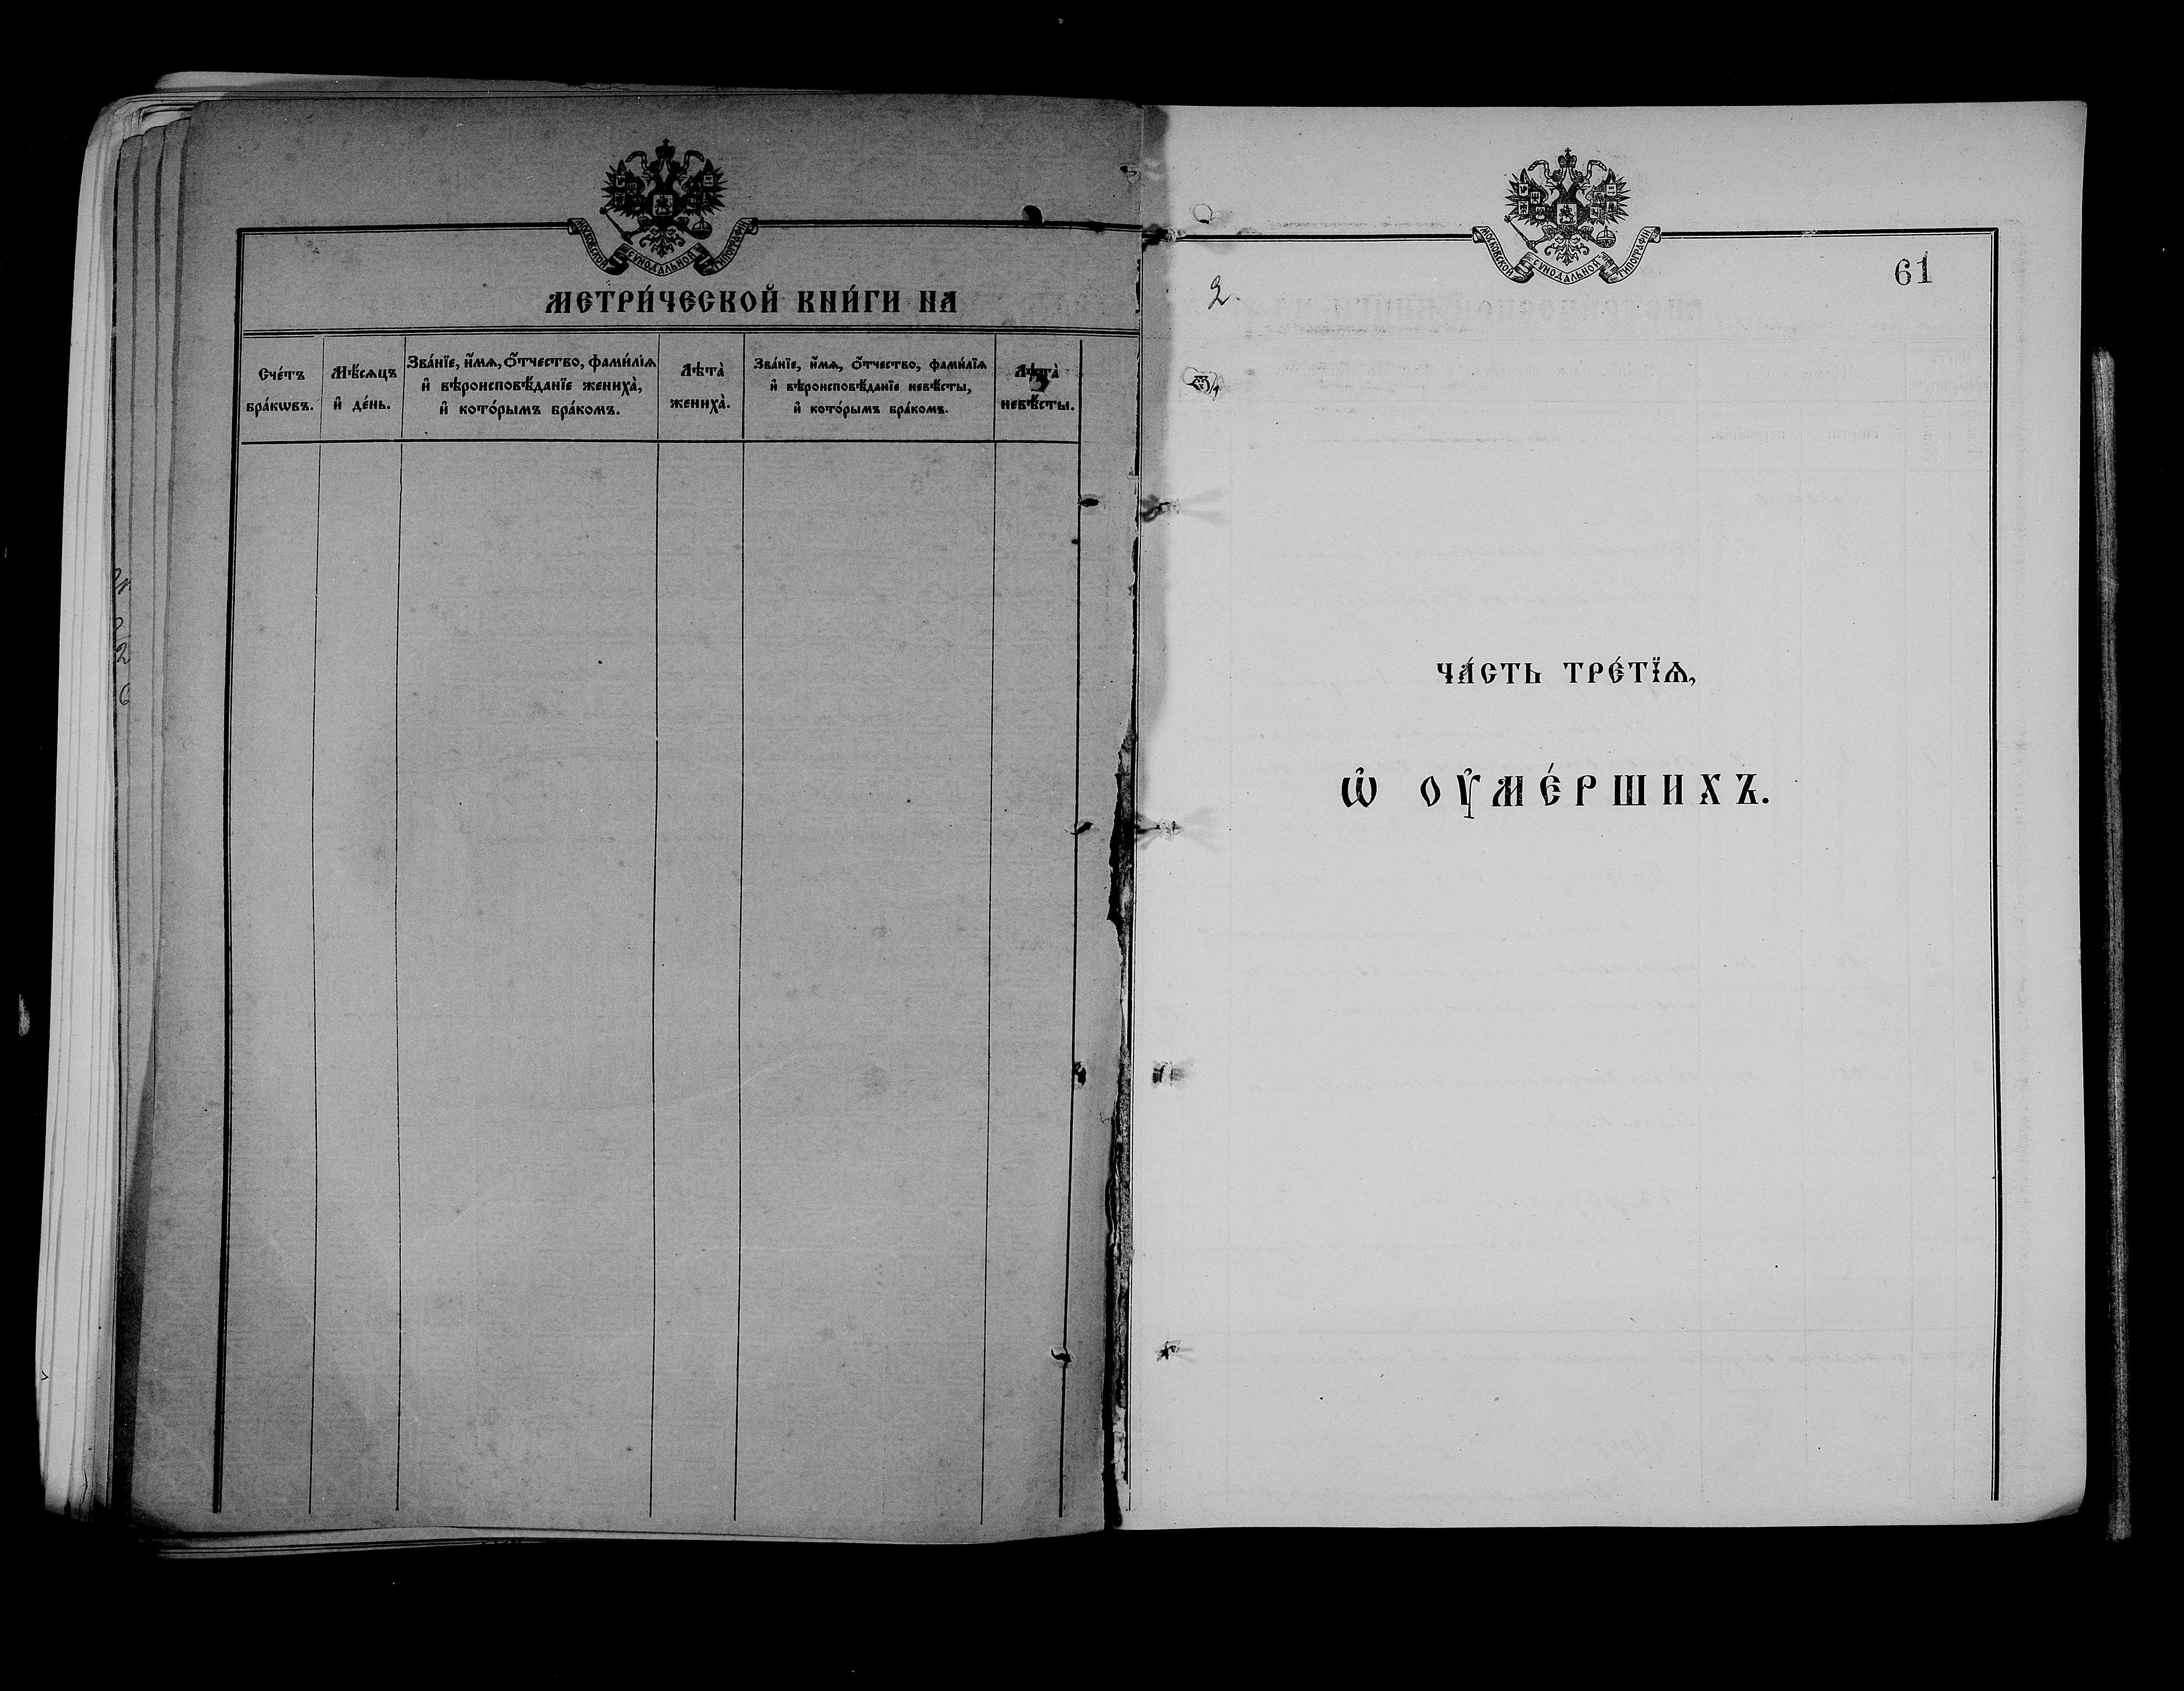 МОСКОВСКОЙ СѴНОДАЛЬНОЙ ТИПОГРАФІИ.
МЕТРИ́ЧЕСКОЙ КНИ́ГИ НА
Сче́тъ
бра́кѡвъ.
Мѣ́сѧцъ
и҆ де́нь.
Зва́нїе, и҆́мѧ, ѻ҆́тчество, фами́лїѧ
и҆ вѣроисповѣ́данїе жениха̀,
и҆ кото́рымъ бра́комъ.
Лѣта̀
жениха̀.
Зва́нїе, и҆́мѧ, ѻ҆́тчество, фами́лїѧ
и҆ вѣроисповѣ́данїе невѣ́сты,
и҆ кото́рымъ бра́комъ.
Лѣта̀
невѣ́сты.
МОСКОВСКОЙ СѴНОДАЛЬНОЙ ТИПОГРАФІИ
61
2.
ЧА́СТЬ ТРЕ́ТЇѦ,
Ѡ҆ ОУ҆МЕ́РШИХЪ.